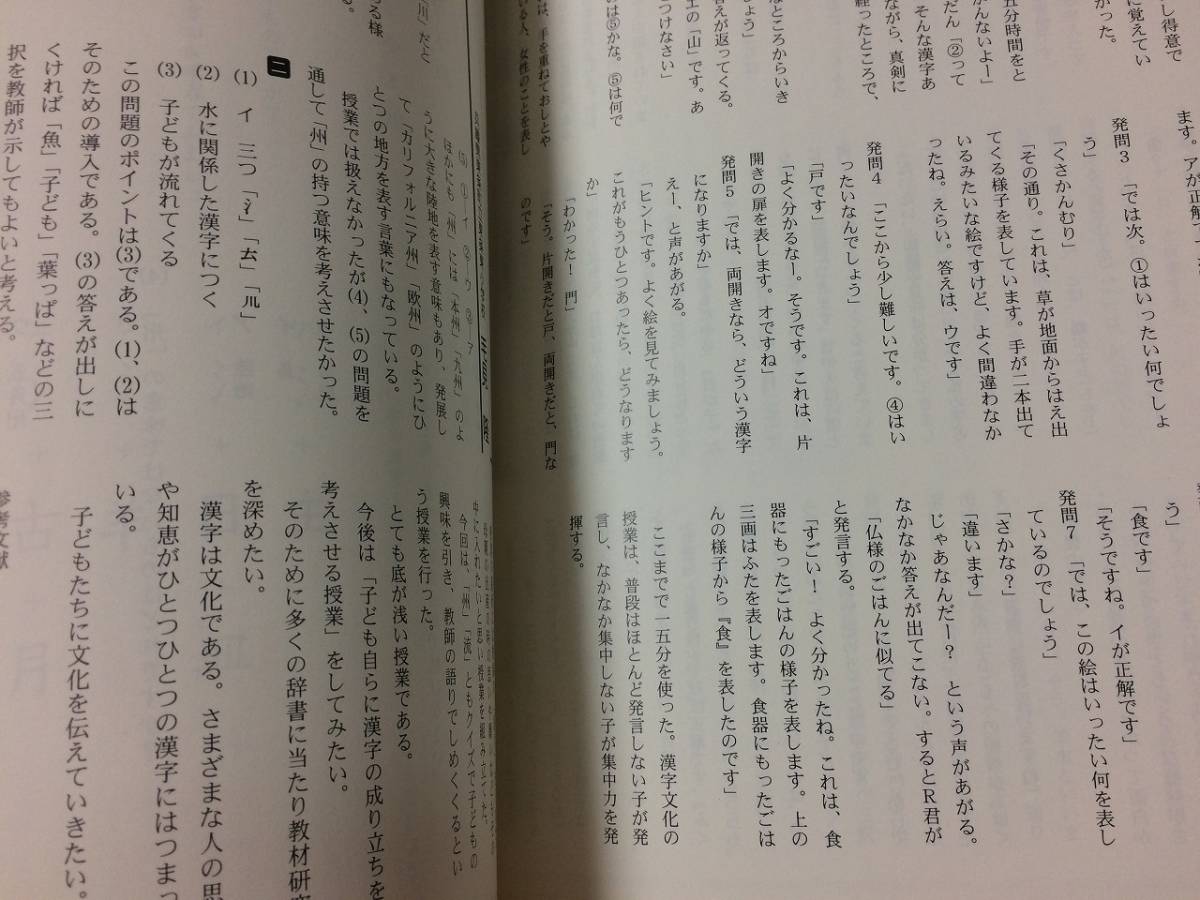 し得意で
に覚えてい
かった。
五分時間をと
かんないよー」
だん「②って
そんな漢字あ
ながら、真剣に
経ったところで、
なところからいき
しょう」
答えが返ってくる。
土の「山」です。あ
つけなさい」
のは⑤かな。⑤は何で
は、手を重ねておしとや
いる人、女性のことを表し
ます。アが正解で
発問3　「では次。①はいったい何でしょ
う」
「くさかんむり」
「その通り。これは、草が地面からはえ出
てくる様子を表しています。手が二本出て
いるみたいな絵ですけど、よく間違わなか
ったね。えらい。答えは、ウです」
発問4　「ここから少し難しいです。④はい
ったいなんでしょう」
「戸です」
「よく分かるなー。そうです。これは、片
開きの扉を表します。オですね」
発問5　「では、両開きなら、どういう漢字
になりますか」
えー、と声があがる。
「ヒントです。よく絵を見てみましょう。
これがもうひとつあったら、どうなります
か」
「わかった！　門」
「そう。片開きだと戸、両開きだと、門な
のです」
う」
「食です」
「そうですね。イが正解です」
発問7　「では、この絵はいったい何を表し
ているのでしょう」
「さかな？」
「違います」
じゃあなんだー？　という声があがる。
なかなか答えが出てこない。するとR君が
「仏様のごはんに似てる」
と発言する。
「すごい！　よく分かったね。これは、食
器にもったごはんの様子を表します。上の
三画はふたを表します。食器にもったごは
んの様子から『食』を表したのです」
ここまでで一五分を使った。漢字文化の
授業は、普段はほとんど発言しない子が発
言し、なかなか集中しない子が集中力を発
揮する。
川」だと
る様
る。
(5)　①イ　②ウ　③ア
ほかにも「州」には「本州」「九州」のよ
うに大きな陸地を表す意味もあり、発展し
て「カリフォルニア州」「欧州」のようにひ
とつの地方を表す言葉にもなっている。
授業では扱えなかったが(4)、(5)の問題を
通して「州」の持つ意味を考えさせたかった。
二
(1)　イ　三つ「氵」「𠫓」「川」
(2)　水に関係した漢字につく
(3)　子どもが流れてくる
この問題のポイントは(3)である。(1)、(2)は
そのための導入である。(3)の答えが出しに
くければ「魚」「子ども」「葉っぱ」などの三
択を教師が示してもよいと考える。
中に入れたいと思い授業を組み立てた。
今回は、「州」「流」ともクイズで子どもの
興味を引き、教師の語りでしめくくるとい
う授業を行った。
とても底が浅い授業である。
今後は「子ども自らに漢字の成り立ちを
考えさせる授業」をしてみたい。
そのために多くの辞書に当たり教材研究
を深めたい。
漢字は文化である。さまざまな人の思
や知恵がひとつひとつの漢字にはつまっ
いる。
子どもたちに文化を伝えていきたい。
参考文献